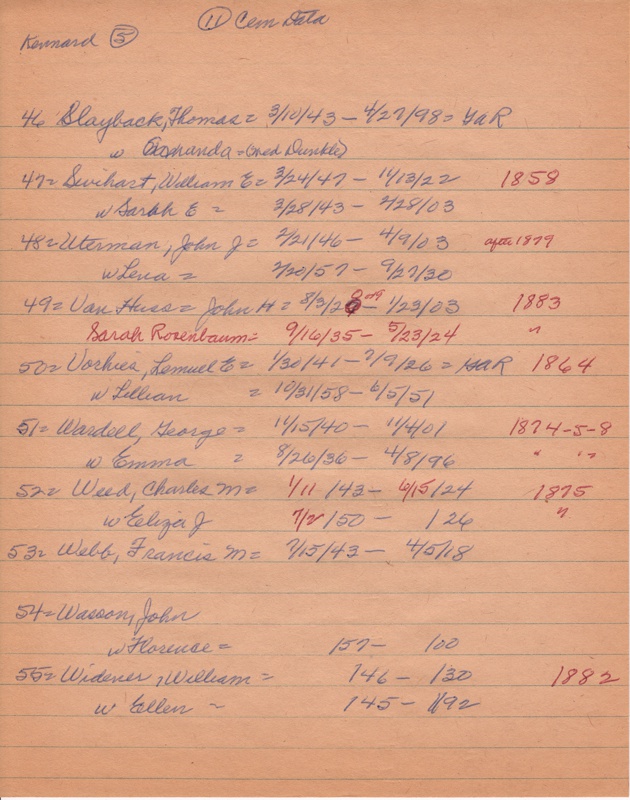 11 Cem Data
Kennard 5
46 Slayback, Thomas = 3/10/43 - 4/27/98 = GaR
w randa = (med Dunkle)
47 = Swihart, William E = 3/24/47 - 11/13/22 1858
w Sarah E = 3/28/43 - 2/28/03
48 = Uterman, John J = 2/21/46 - 4/9/03 after 1879
w Lena = 2/20/57 - 9/27/30
49 = Van Huss = John H = 8/3/28 or 9 - 1/23/03 1883
Sarah Rosenbaum = 9/16/35 - 5/23/24 "
50 = Vorhies, Lemuel E = 1/30/41 - 7/9/26 = GaR 1864
w Lillian = 10/31/58 - 6/5/51
51 = Wardell, George = 11/15/40 - 11/4/01 1874-5-8
w Emma = 8/26/36 - 4/8/96 " "
52 = Weed, Charles M = 1/11/43 - 6/15/24 1875
w Eliza J 7/2/50 - /26 "
53 = Webb, Francis M = 7/15/43 - 4/5/18
54 = Wasson, John
w Florence = /57 - /00
55 = Widener, William = /46 - /30 1882
w Ellen = /45 - /92